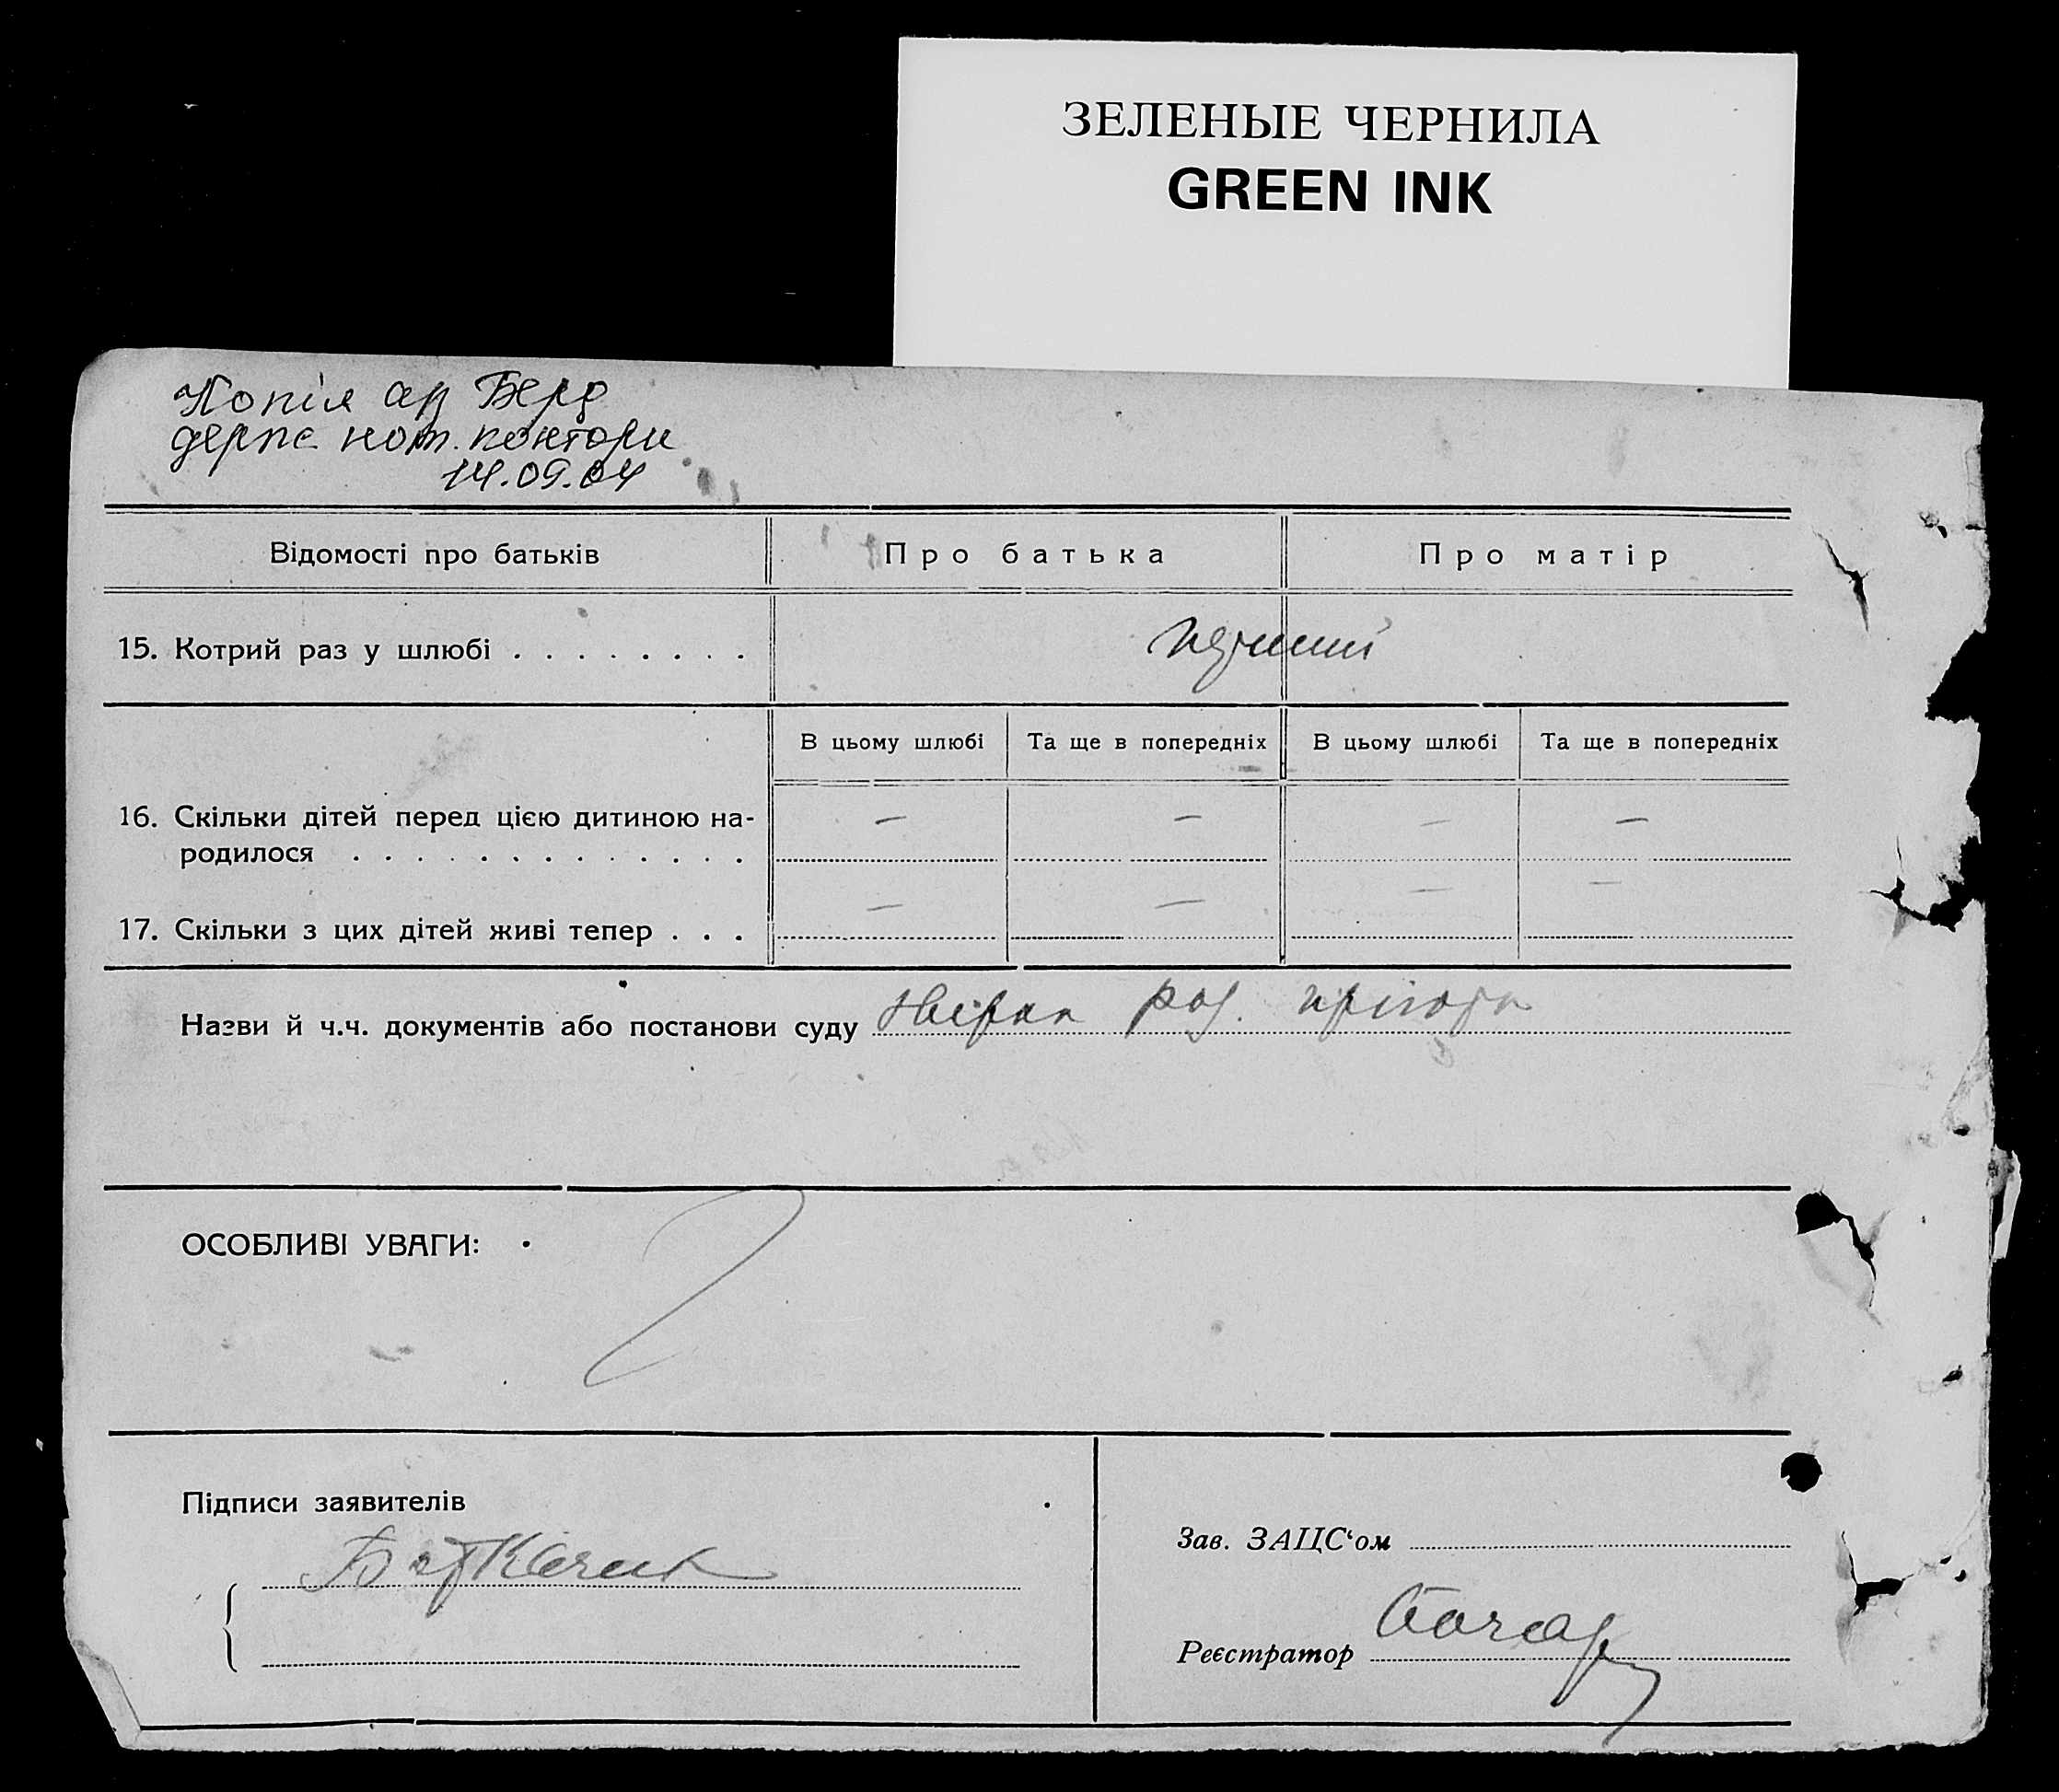 ЗЕЛЕНЫЕ ЧЕРНИЛА
GREEN INK
Копія Берд
держ нот. контори
14.09.04
Відомості про батьків Про батька Про матір
15. Котрий раз у шлюбі . . . . . . . .
В цьому шлюбі Та ще в попередніх В цьому шлюбі Та ще в попередніх
16. Скільки дітей перед цією дитиною на- — — — —
родилося . . . . . . . . . . . . .
17. Скільки з цих дітей живі тепер . . . — — — —
Назви й ч.ч. документів або постанови суду
ОСОБЛИВІ УВАГИ:
Підписи заявителів
Зав. ЗАЦС‘ом
Реєстратор